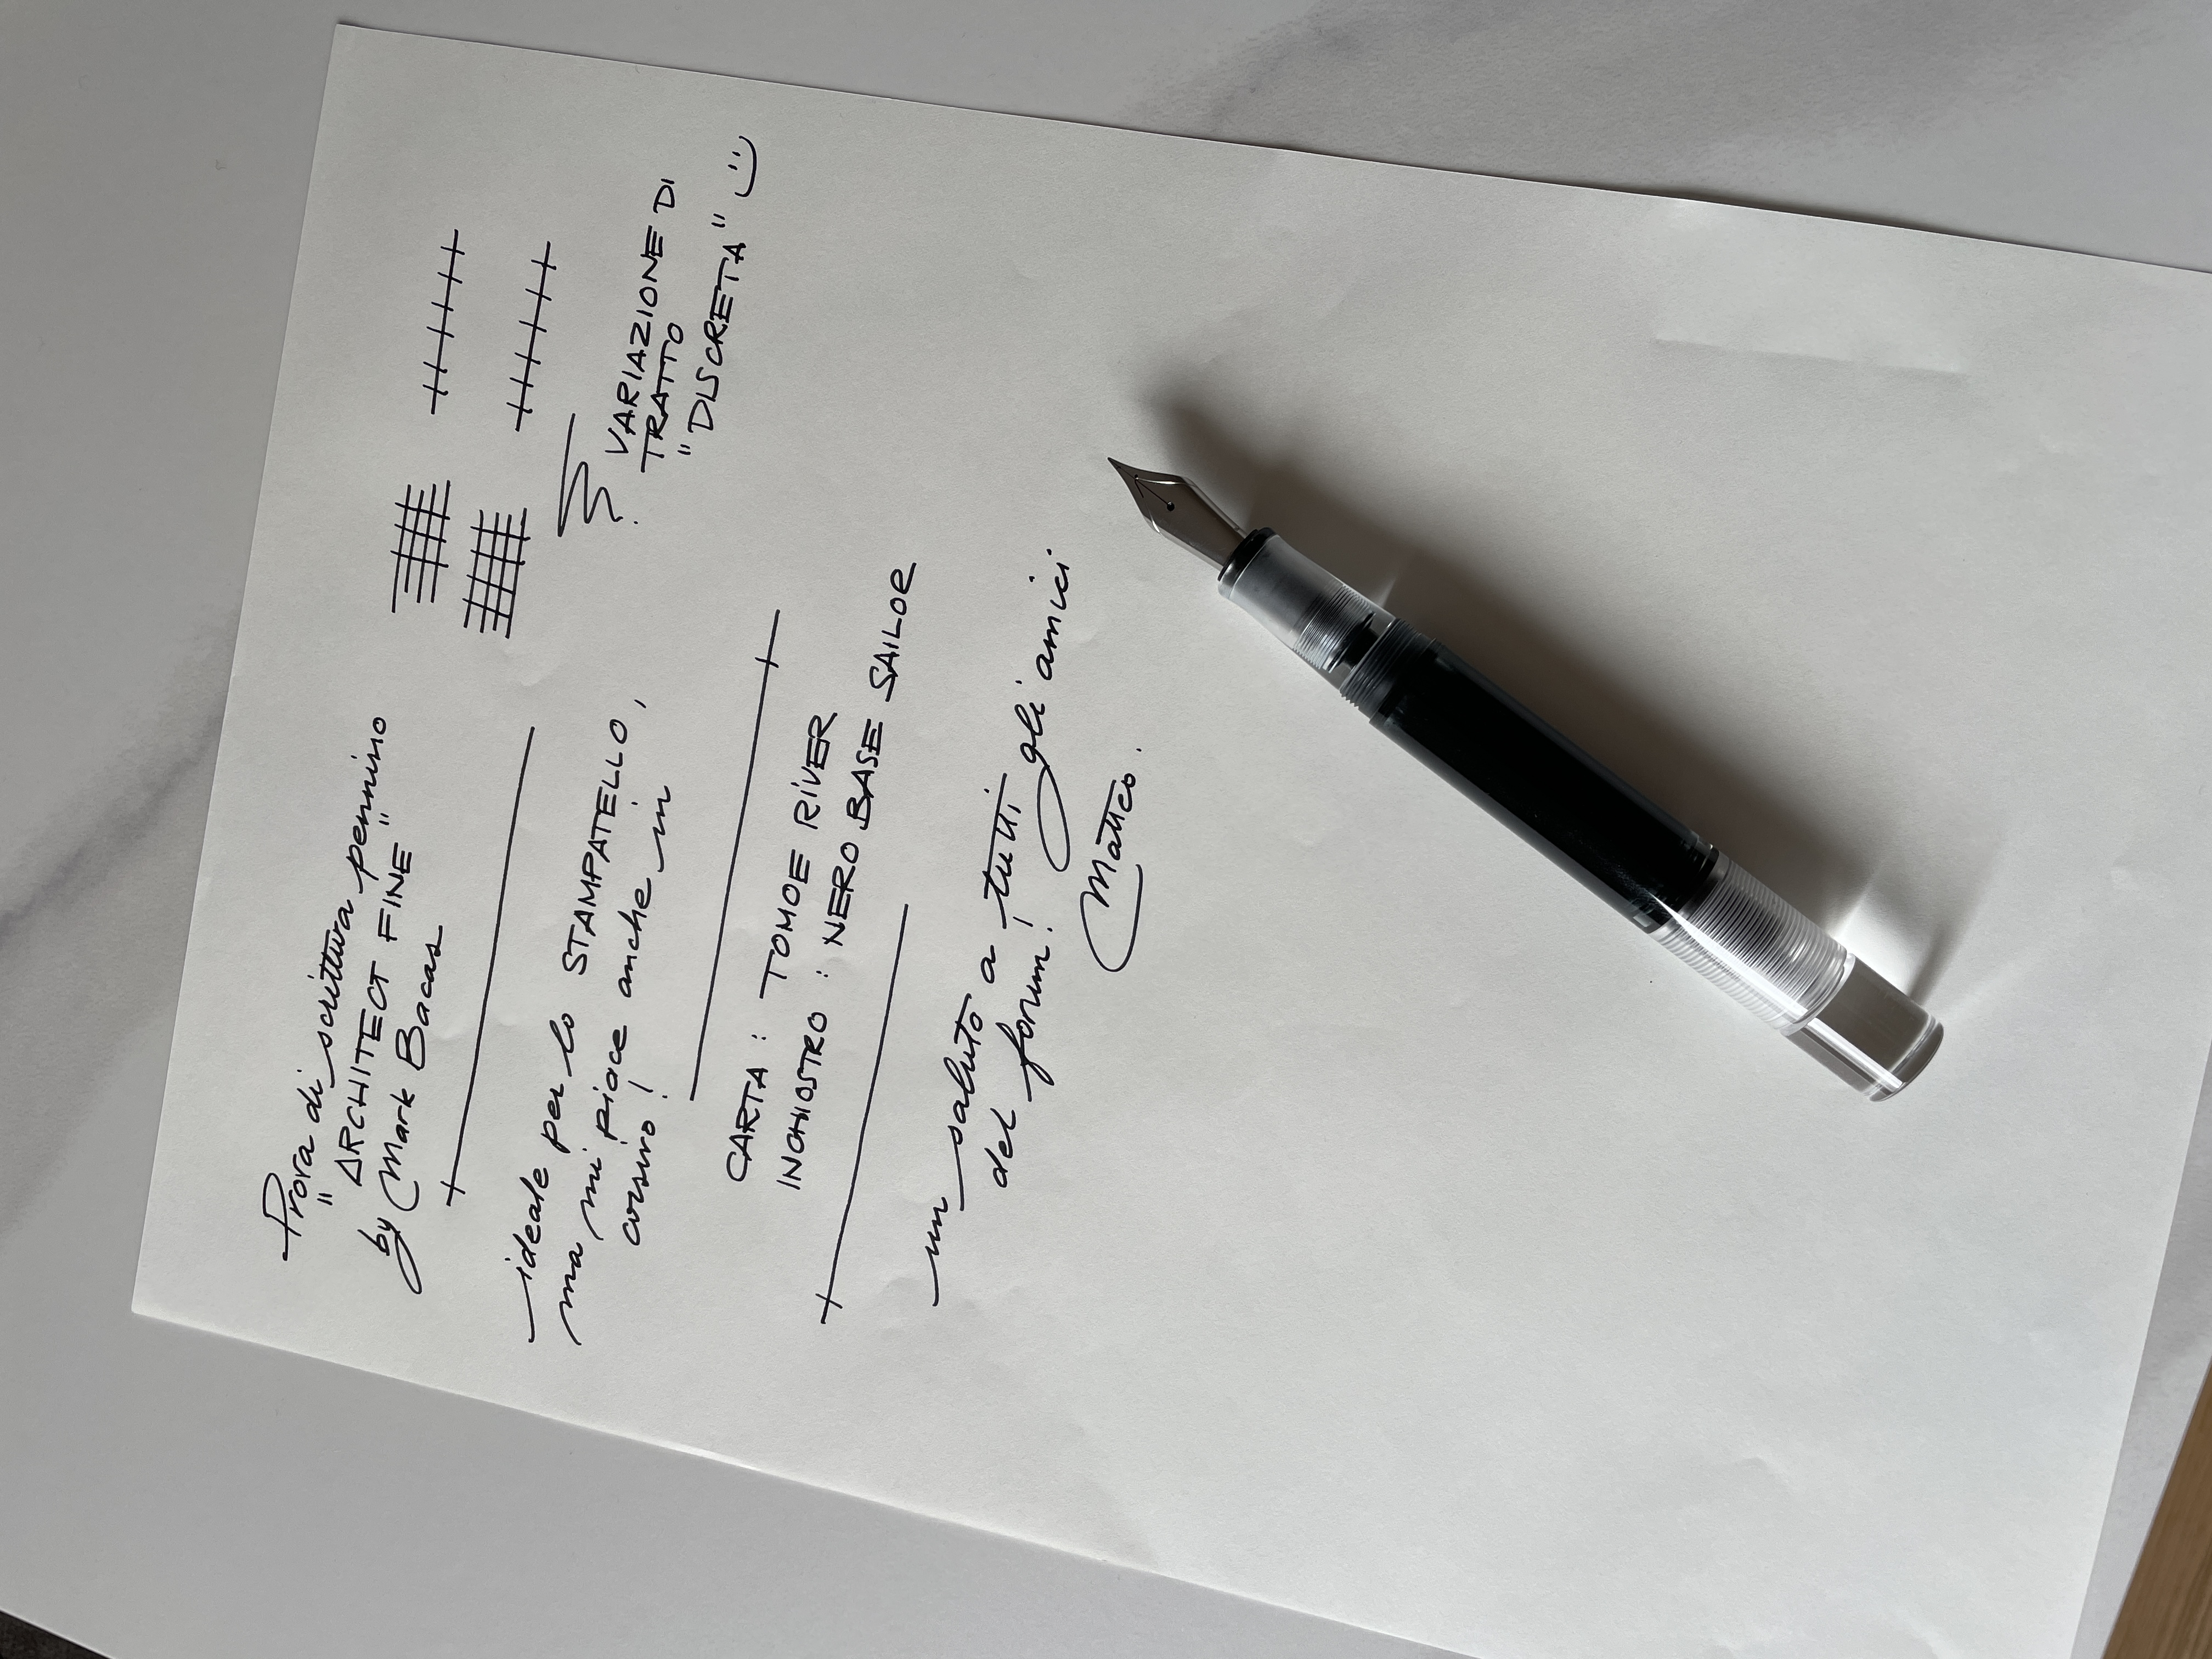 Prova di scrittura pennino
"ARCHITECT FINE"
by Mark Bacas
VARIAZIONE DI
TRATTO
"DISCRETA" :)
ideale per lo STAMPATELLO,
ma mi piace anche in
corsivo!
CARTA: TOMOE RIVER
INCHIOSTRO: NERO BASE SAILOR
un saluto a tutti gli amici
del forum!
Matteo.